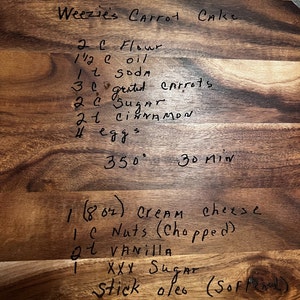 Weezie's Carrot Cake
2 C Flour
1 1/2 C oil
1 t Soda
3 C grated Carrots
2 C Sugar
2 t Cinnamon
4 eggs
350° 30 min
1 (8 oz) Cream Cheese
1 C Nuts (Chopped)
2 t Vanilla
1 XXX Sugar
Stick oleo (Softened)